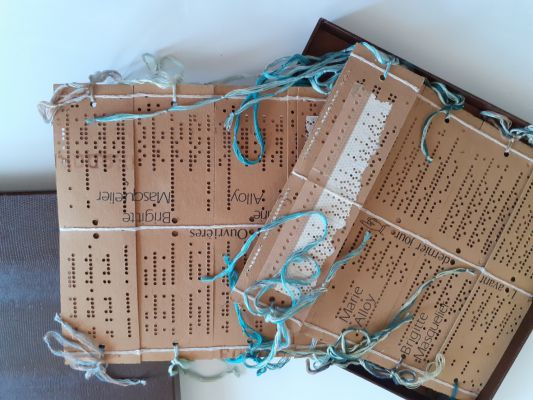 Brigitte
Masquelier
Alloy
Ouvrières
dernier jour
L'avant
Marie
Alloy
Brigitte
Masquelier